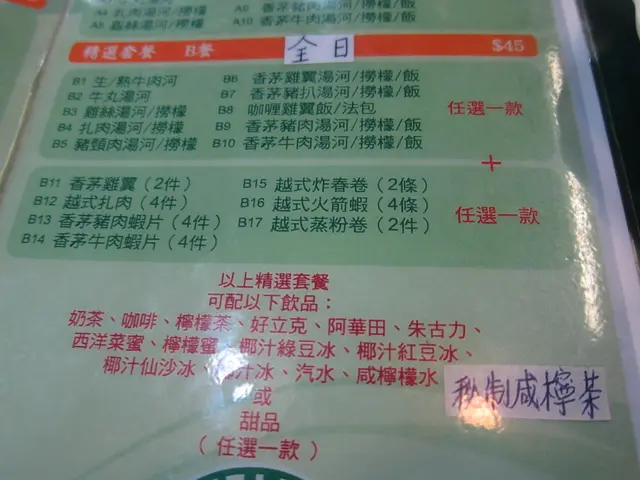 A4 扎肉湯河/撈檬
A5 雞絲湯河/撈檬
A10 香茅牛肉湯河/撈檬/飯
精選套餐 B餐 全日 $45
B1 生/熟牛肉河
B2 牛丸湯河
B3 雞絲湯河/撈檬
B4 扎肉湯河/撈檬
B5 豬頸肉湯河/撈檬
B6 香茅雞翼湯河/撈檬/飯
B7 香茅豬扒湯河/撈檬/飯
B8 咖喱雞翼飯/法包
B9 香茅豬肉湯河/撈檬/飯
B10 香茅牛肉湯河/撈檬/飯
任選一款
+
B11 香茅雞翼(2件)
B12 越式扎肉(4件)
B13 香茅豬肉蝦片(4件)
B14 香茅牛肉蝦片(4件)
B15 越式炸春卷(2條)
B16 越式火箭蝦(4條)
B17 越式蒸粉卷(2件)
任選一款
以上精選套餐
可配以下飲品:
奶茶、咖啡、檸檬茶、好立克、阿華田、朱古力、
西洋菜蜜、檸檬蜜、椰汁綠豆冰、椰汁紅豆冰、
椰汁仙沙冰、椰汁冰、汽水、咸檸檬水
秘制咸檸茶
或
甜品
(任選一款)